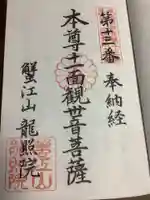 第十三番
奉納経
本尊十一面観世音菩薩
蟹江山 龍照院